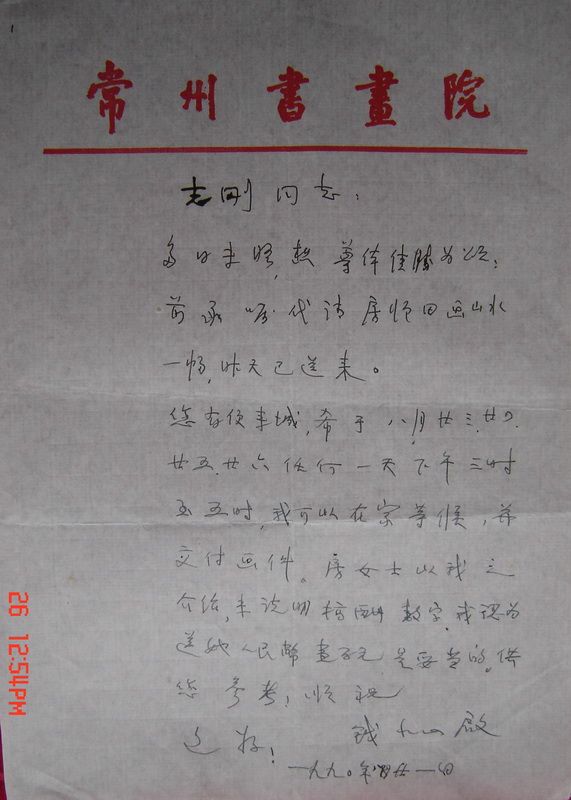 常州書畫院
志刚同志：
多日未晤，想尊体佳勝为颂；
前承嘱代请房师田画山水
一幅，昨天已送来。
您有便来城，希于八月廿三、廿四、
廿五、廿六任何一天下午三时
至五时，我可以在家等候，并
交付画件。房女士以我之
介绍，未说明稿酬数字，我认为
送她人民幣壹百元是妥当的。供
您参考；顺祝
近好！ 钱 啟
一九九〇年八月廿一日
26 12:54PM